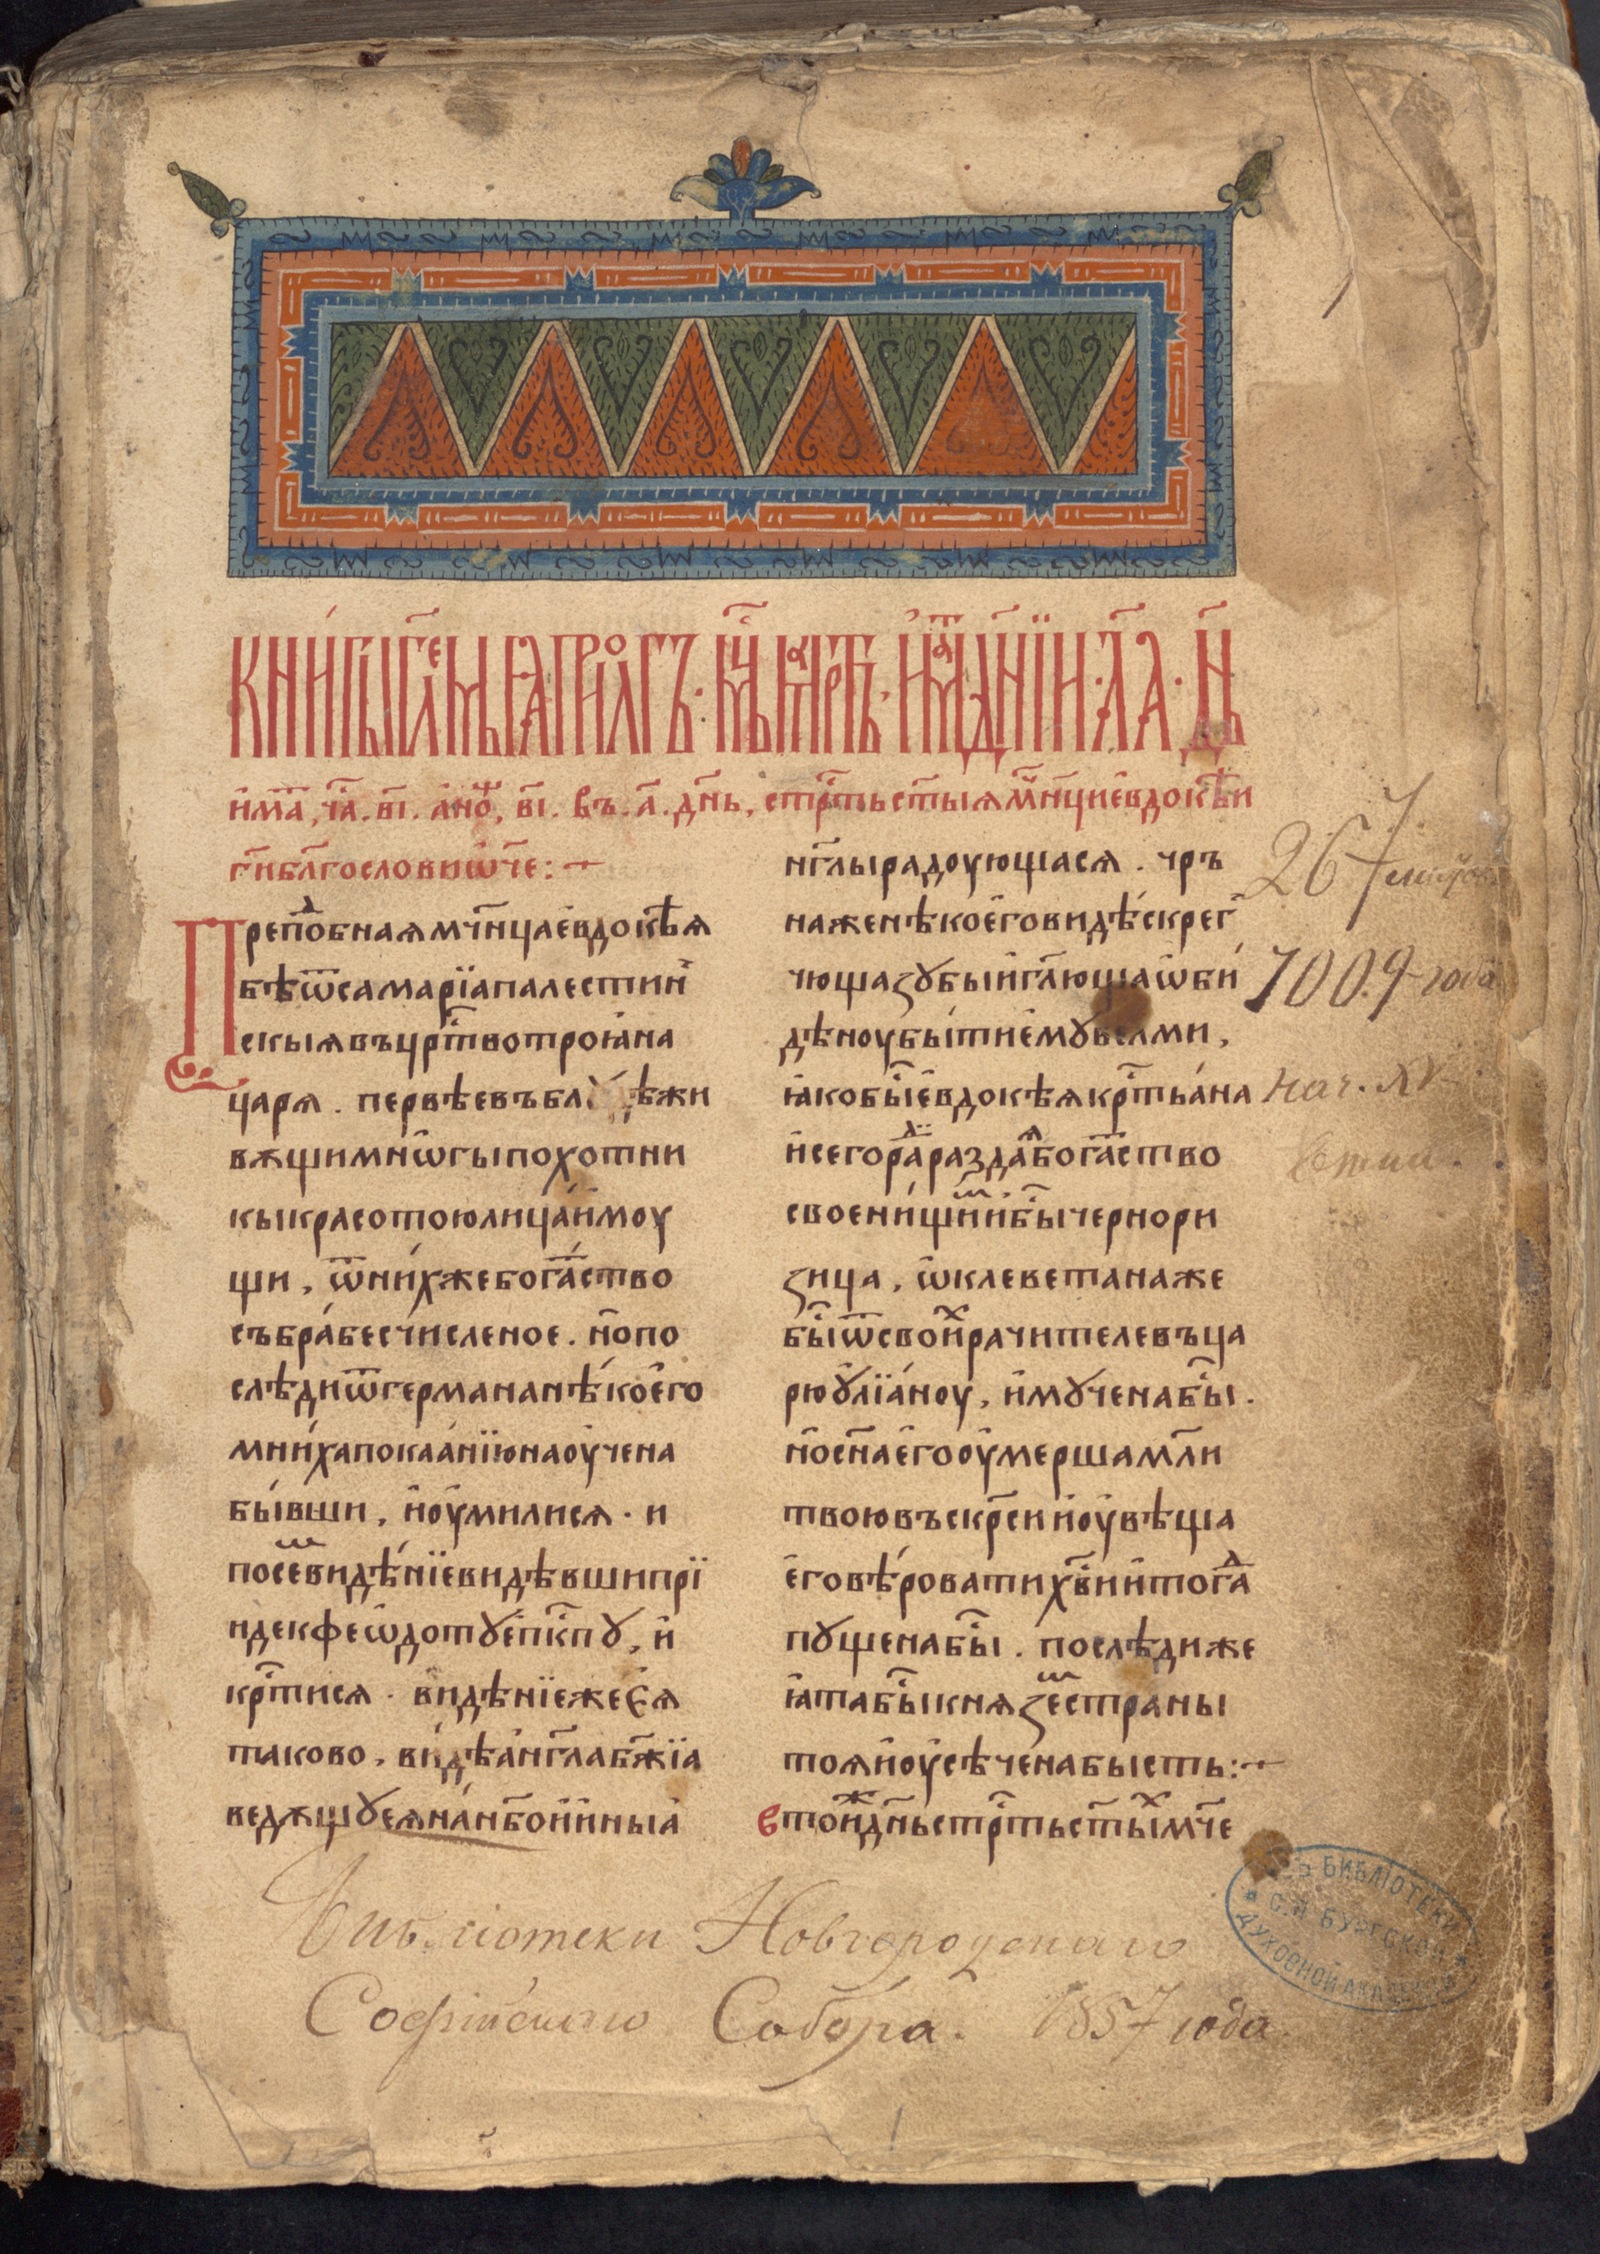 имат, час. ві. а нощ, ві. въ. а҃. дн҃ь, стрⷭ҇ть ст҃ыѧ мч҃нци евдокѣи
гⷭ҇и блгⷭ҇ослови ѿче:~
Прпⷣобнаѧ мч҃нца евдокѣѧ
бѣ ѿ самарїа палестин
скыѧ въ црⷭ҇тво троіана
царѧ. первѣе въ бл дѣжи
вѫщи мнѡгы похотни
кы красотою лица имоу
щи, ѿ них же богатⷭ҇ство
събра бесчисленое. но по
слѣди ѿ германа нѣкоего
мниха покаанїю наоучена
бывши, и оумилисѧ. и
посем видѣнїе видѣвши прї
иде к феѡдотꙋ епⷭ҇кпꙋ, и
крⷭ҇тисѧ. видѣнїе же еѧ
таково, видѣ англ҃а бж҃їа
ведѫщꙋ еѧ на нб҃о и иныа
нг҃лы радоующасѧ. чръ
на же нѣкоего видѣ скрег
чюща зꙋбы и гл҃юща ѡби
дѣноу быти емꙋ велми,
іако быⷭ҇ евдокѣѧ крⷭ҇тьана
и сего раⷣ раздаѧ богатⷭ҇ство
свое нищим и быⷭ҇ чернори
зица, ѡклеветана же
быⷭ҇ ѿ своих рачителевъ ца
рю ꙋлїаноу, и мꙋчена быⷭ҇.
но сн҃а его оумерша мл҃и
твою въскрⷭ҇си и оувѣща
его вѣровати хвⷭ҇и и тогдⷶ
пꙋщена быⷭ҇. послѣди же
іата быⷭ҇ кнѧзем страны
тоѧ и оусѣчена бысть:~
в той дн҃ь стрⷭ҇ть ст҃ых мч҃е
267 листов
7009 года
Нач. XV
Библіотеки Новгородскаго
Софійскаго Собора. 1857 года.
ИЗЪ БИБЛІОТЕКИ
С. П. БУРГСКОЙ
ДУХОВНОЙ АКАДЕМІИ